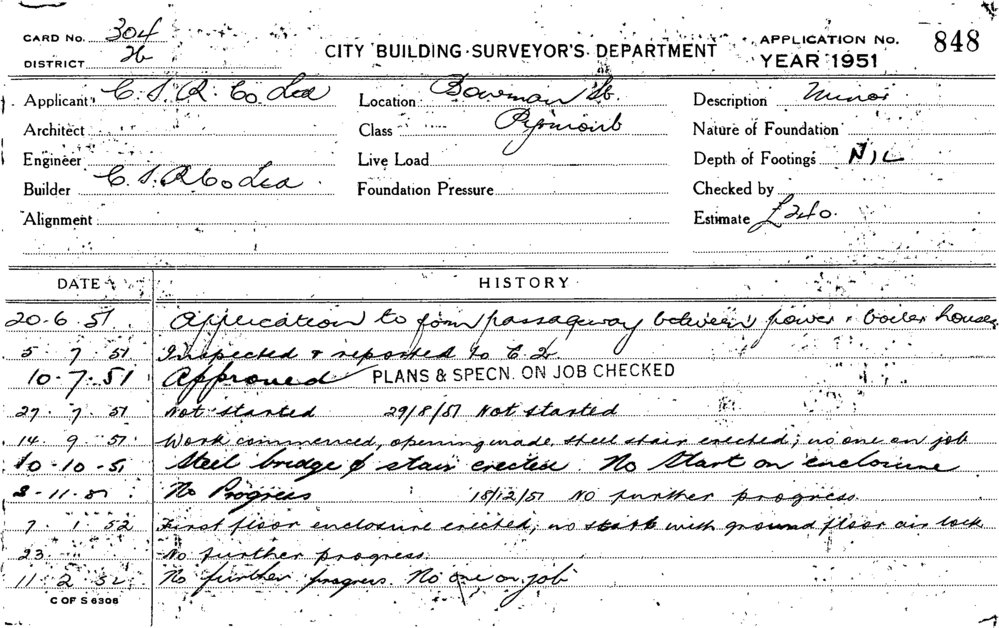 CARD No. 304
DISTRICT
CITY BUILDING SURVEYOR'S DEPARTMENT
APPLICATION No. 848
YEAR 1951
Applicant C. S. R. Co Ltd
Location Bowman St.
Description Minor
Architect
Class Pyrmont
Nature of Foundation
Engineer
Live Load
Depth of Footings NIL
Builder C. S. R Co Ltd
Foundation Pressure
Checked by
Alignment
Estimate £240.
DATE HISTORY
20.6.51 Application to form passageway between power & boiler houses
5 . 7 . 51 Inspected & reported to C.
10.7.51 Approved PLANS & SPECN. ON JOB CHECKED
27 . 7 . 51 Not started 29/8/51 Not started
14 . 9 . 51 Work commenced, opening made, steel stair erected, no one on job
10-10-51 Steel bridge & stair erected. No Start on enclosure
8-11-51 No Progress 15/12/51 No further progress.
7 . 1 . 52 First floor enclosure erected, no start with ground floor air lock
23 No further progress.
11 . 2 . 52 No further progress. No one on job
C OF S 6306